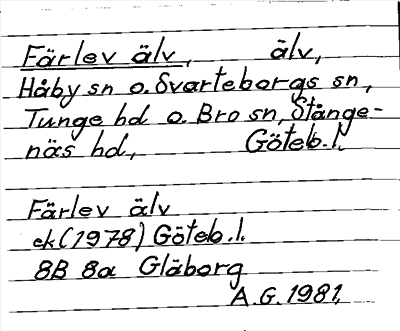 Färlev älv, älv,
Håby sn o. Svarteborgs sn,
Tunge hd o. Bro sn, Stånge-
näs hd, Göteb.l.
Färlev älv
ek (1978) Göteb.l.
8B 8a Gläborg
A.G. 1981.